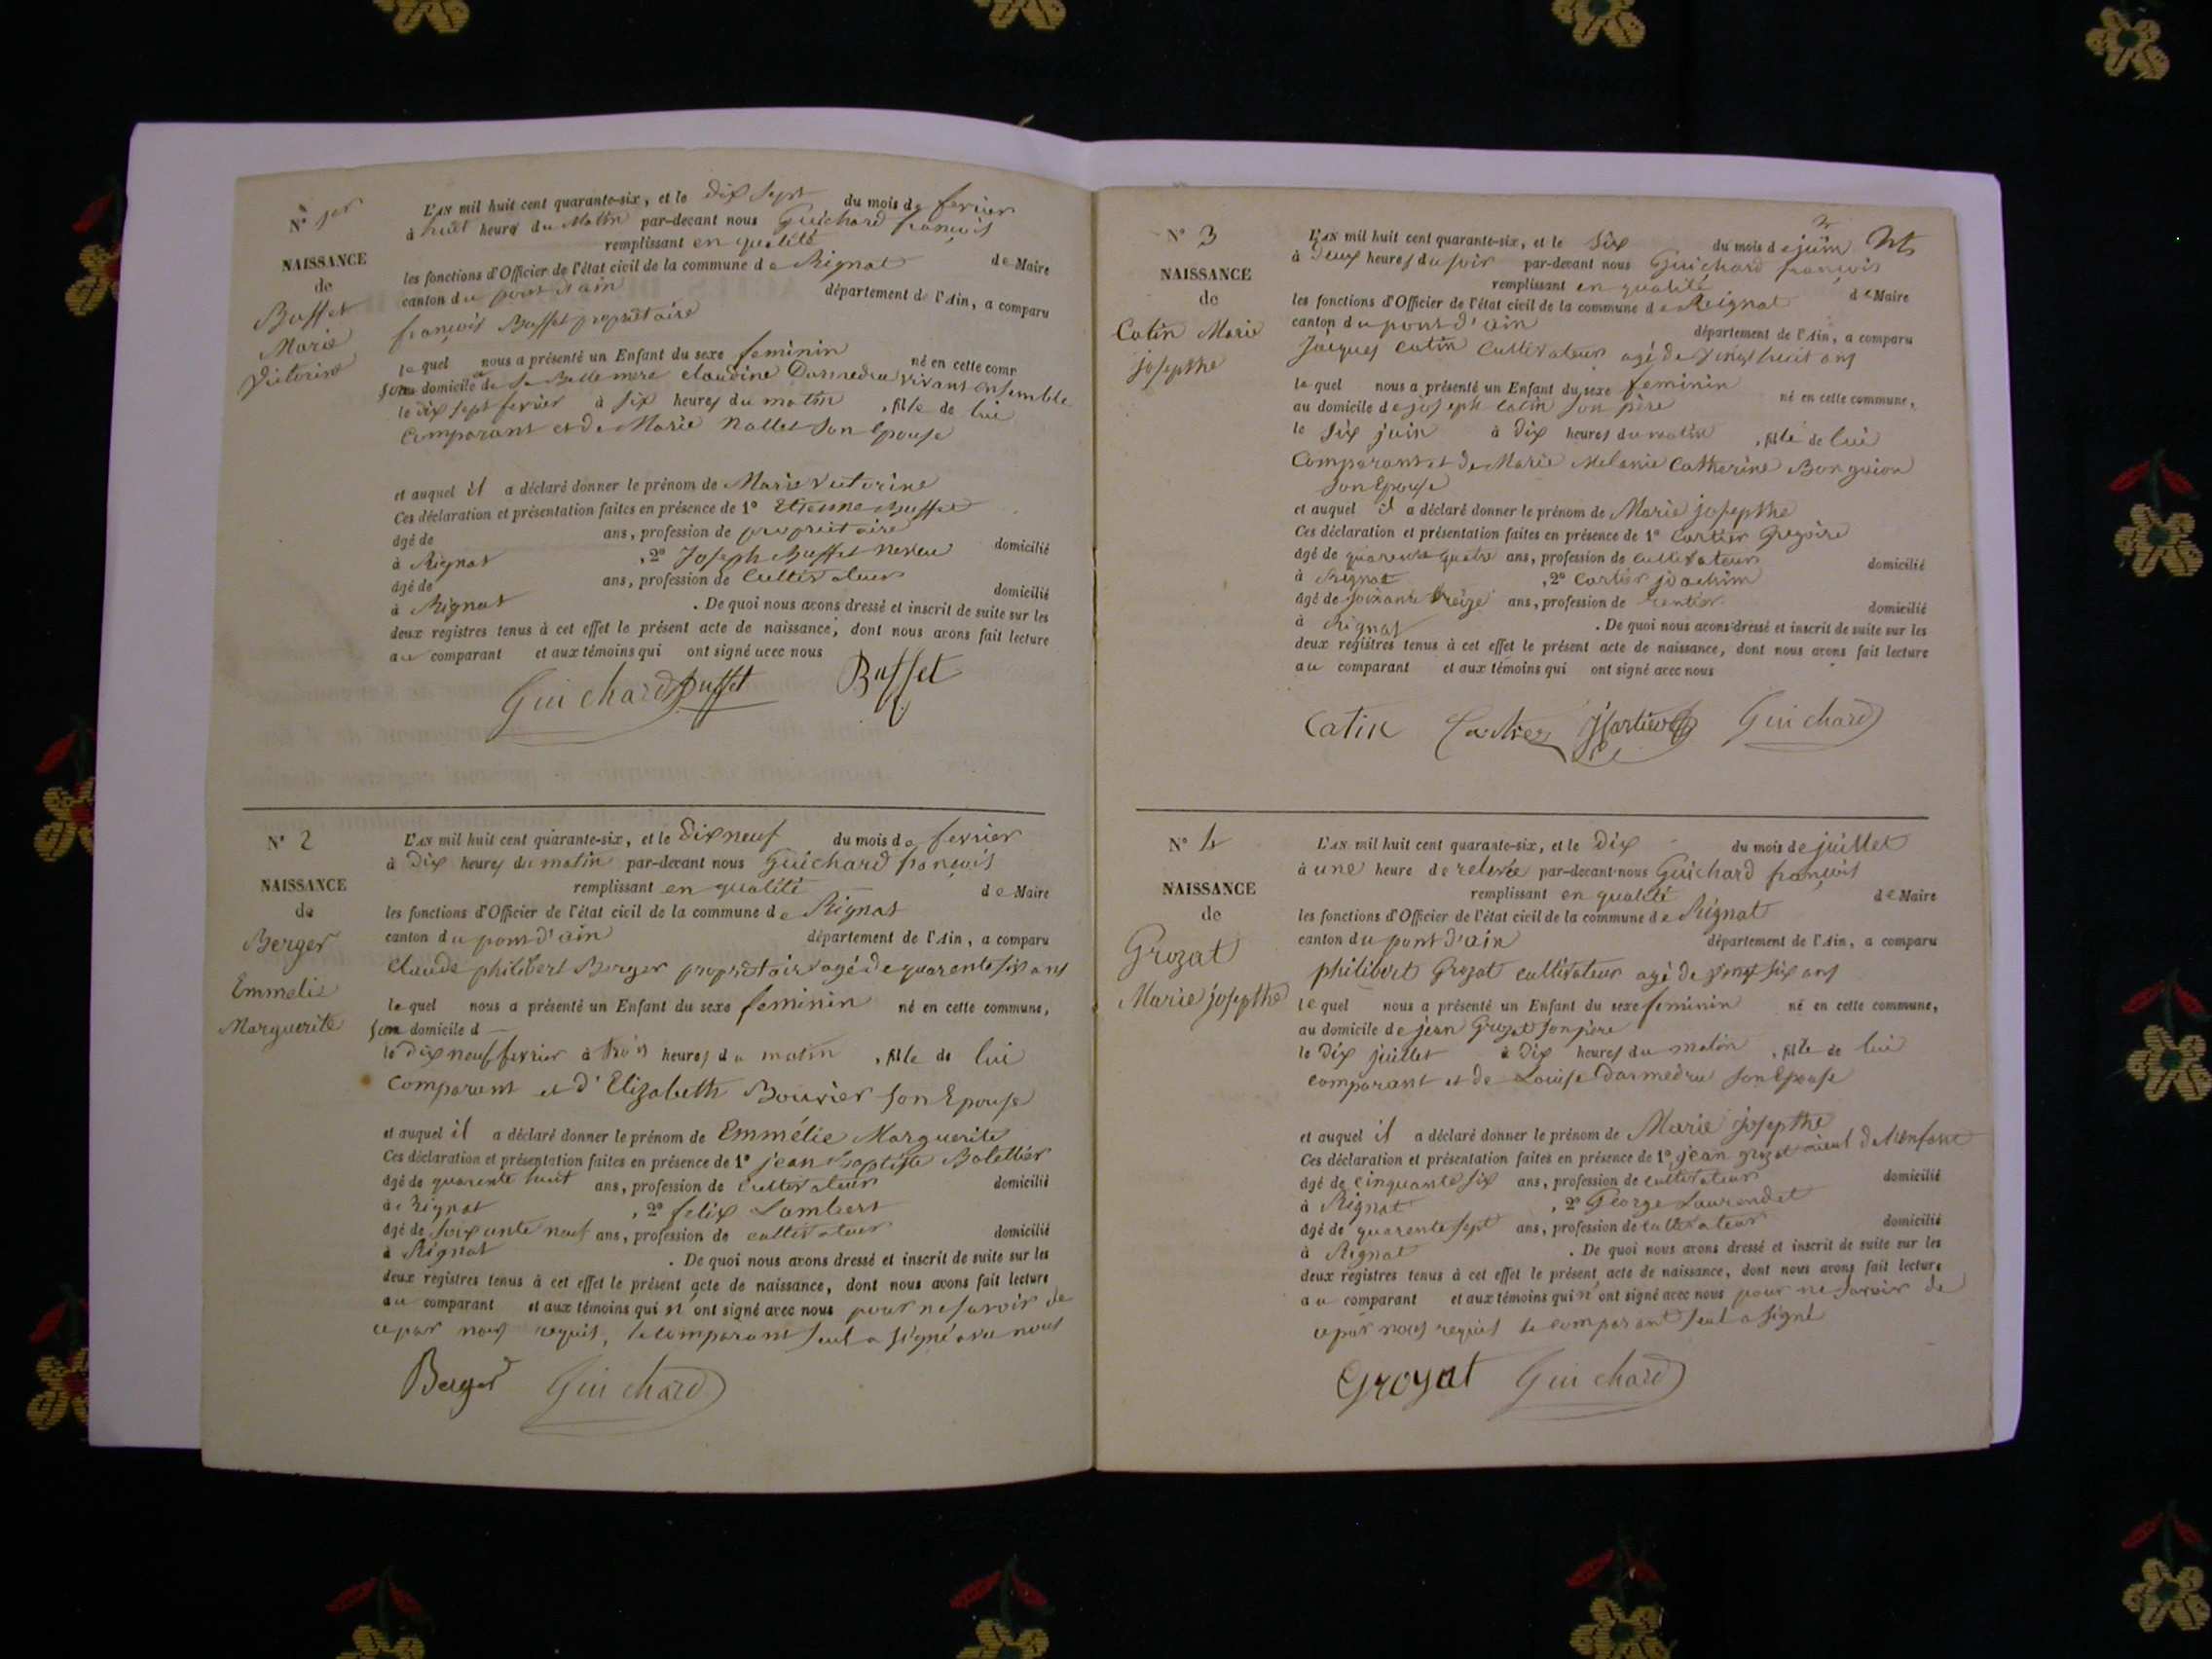 N° 1er
NAISSANCE
de
Buffet
Marie
Victorine
L'AN mil huit cent quarante-six, et le dix sept du mois de fevrier
à huit heures du Matin par-devant nous Guichard françois
remplissant en qualité de Maire
les fonctions d'Officier de l'état civil de la commune de Rignat
canton du pont d'ain département de l'Ain, a comparu
françois Buffet propriétaire
lequel nous a présenté un Enfant du sexe feminin né en cette com
son domicile de sa Belle mere claudine Darmedru vivant ensemble
le dix sept fevrier à six heures du matin, fille de lui
Comparant et de Marie Nallet son Epouse
et auquel il a déclaré donner le prénom de Marie Victorine
Ces déclaration et présentation faites en présence de 1° Etienne Buffet
âgé de ans, profession de propriétaire domicilié
à Rignat, 2° Joseph Buffet neveu
âgé de ans, profession de Cultivateur domicilié
à Rignat. De quoi nous avons dressé et inscrit de suite sur les
deux registres tenus à cet effet le présent acte de naissance, dont nous avons fait lecture
au comparant et aux témoins qui ont signé avec nous
Guichard Buffet Buffet
N° 2
NAISSANCE
de
Berger
Emmelie
Marguerite
L'AN mil huit cent quarante-six, et le Dix neuf du mois de fevrier
à Dix heures du matin par-devant nous Guichard françois
remplissant en qualité de Maire
les fonctions d'Officier de l'état civil de la commune de Rignat
canton du pont d'ain département de l'Ain, a comparu
Claude philibert Berger propriétaire agé de quarente six ans
lequel nous a présenté un Enfant du sexe feminin né en cette commune,
son domicile d
le dix neuf fevrier à trois heures du matin, fille de lui
Comparant et d'Elizabeth Bouvier son Epouse
et auquel il a déclaré donner le prénom de Emmélie Marguerite
Ces déclaration et présentation faites en présence de 1° jean Baptiste Bolettier
âgé de quarente huit ans, profession de Cultivateur domicilié
à Rignat, 2° felix Lambert
âgé de soixante neuf ans, profession de cultivateur domicilié
à Rignat. De quoi nous avons dressé et inscrit de suite sur les
deux registres tenus à cet effet le présent acte de naissance, dont nous avons fait lecture
au comparant et aux témoins qui n'ont signé avec nous pour ne savoir de
ce par nous requis, le comparant seul a signé avec nous
Berger Guichard
N° 3
NAISSANCE
de
Catin Marie
josepthe
L'AN mil huit cent quarante-six, et le Six du mois de juin
à Deux heures du soir par-devant nous Guichard françois
remplissant en qualité de Maire
les fonctions d'Officier de l'état civil de la commune de Reignat
canton du pont d'ain département de l'Ain, a comparu
Jacques Catin Cultivateur agé de vingt huit ans
lequel nous a présenté un Enfant du sexe feminin né en cette commune,
au domicile de joseph Catin son père
le Six juin à Dix heures du matin, fille de lui
Comparant et de Marie Melanie Catherine Bonguion
son Epouse
et auquel il a déclaré donner le prénom de Marie josepthe
Ces déclaration et présentation faites en présence de 1° Cartier Gregoire
âgé de quarente quatre ans, profession de Cultivateur domicilié
à Rignat, 2° Cartier joachim
âgé de soixante treize ans, profession de rentier domicilié
à Rignat. De quoi nous avons dressé et inscrit de suite sur les
deux registres tenus à cet effet le présent acte de naissance, dont nous avons fait lecture
au comparant et aux témoins qui ont signé avec nous
Catin Cartier JCartier Guichard
N° 4
NAISSANCE
de
Grozat
Marie josepthe
L'AN mil huit cent quarante-six, et le Dix du mois de juillet
à une heure de relevée par-devant nous Guichard françois
remplissant en qualité de Maire
les fonctions d'Officier de l'état civil de la commune de Rignat
canton du pont d'ain département de l'Ain, a comparu
philibert Grozat cultivateur agé de vingt six ans
lequel nous a présenté un Enfant du sexe feminin né en cette commune,
au domicile de jean Grozat son père
le Dix juillet à Dix heures du matin, fille de lui
comparant et de Louise Darmedru son Epouse
et auquel il a déclaré donner le prénom de Marie josepthe
Ces déclaration et présentation faites en présence de 1° jean grozat aieul de l'enfant
âgé de cinquante six ans, profession de cultivateur domicilié
à Rignat, 2° George Laurendet
âgé de quarente sept ans, profession de cultivateur domicilié
à Rignat. De quoi nous avons dressé et inscrit de suite sur les
deux registres tenus à cet effet le présent acte de naissance, dont nous avons fait lecture
au comparant et aux témoins qui n'ont signé avec nous pour ne savoir de
ce par nous requis le comparant seul a signé
Grozat Guichard